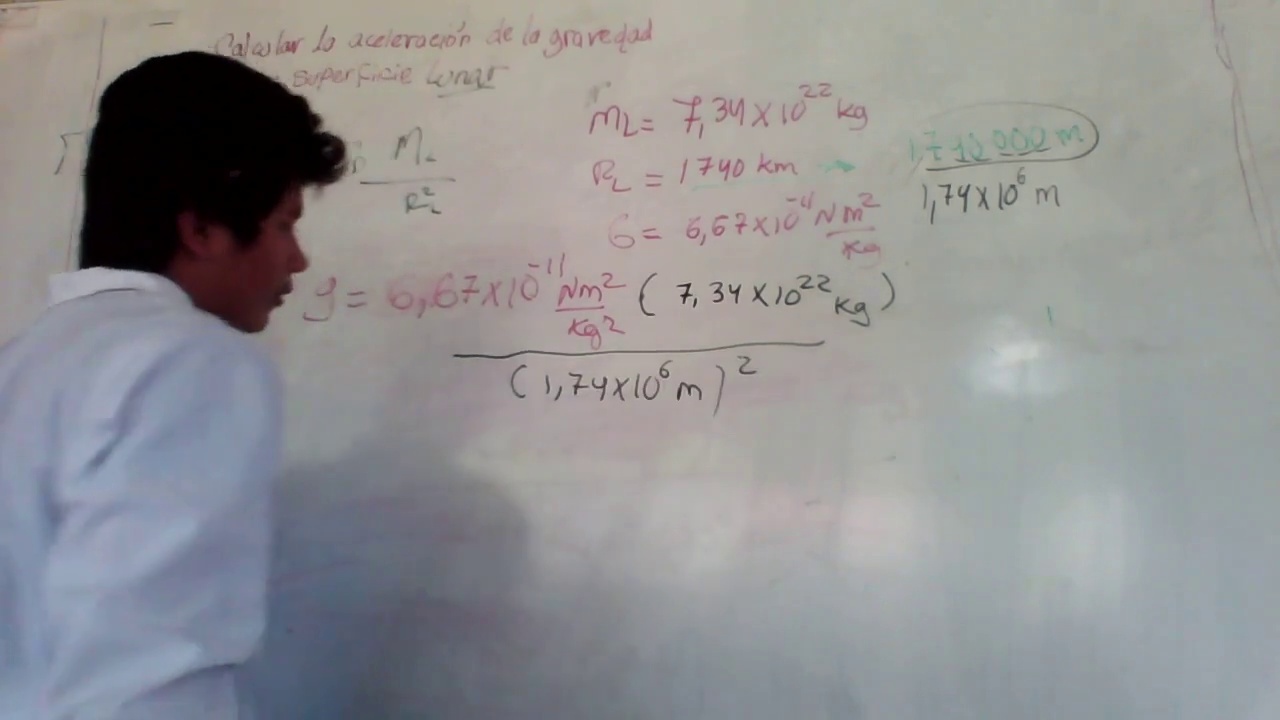 Calcular la aceleración de la gravedad
superficie Lunar
M_L
R_L^2
M_L = 7,34 x 10^22 kg
R_L = 1740 km → 1,740 000 m
1,74 x 10^6 m
G = 6,67 x 10^-11 Nm^2/kg
g = 6,67 x 10^-11 Nm^2/kg^2 ( 7,34 x 10^22 kg )
( 1,74 x 10^6 m )^2